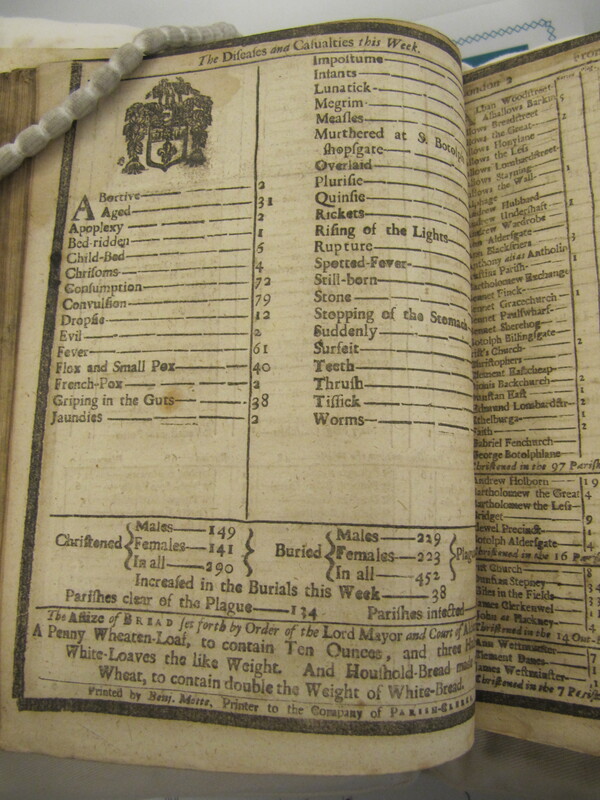 The Diſeaſes and Caſualties this Week.
Abortive 2
Aged 31
Apoplexy 2
Bed-ridden 1
Child-Bed 6
Chriſoms 4
Conſumption 72
Convulſion 79
Dropſie 12
Evil 2
Fever 61
Flox and Small Pox 40
French-Pox 2
Griping in the Guts 38
Jaundies 2
Impoſtume
Infants
Lunatick
Megrim
Meaſles
Murthered at S. Botolph
ſhopſgate
Overlaid
Pluriſie
Quinſie
Rickets
Riſing of the Lights
Rupture
Spotted-Fever
Still-born
Stone
Stopping of the Stomach
Suddenly
Surfeit
Teeth
Thruſh
Tiſſick
Worms
Chriſtened { Males 149
Females 141
In all 290 }
Buried { Males 229
Females 223
In all 452 } Plag
Increaſed in the Burials this Week 38
Pariſhes clear of the Plague 134 Pariſhes infected
The Aſſize of BREAD ſet forth by Order of the Lord Mayor and Court of
A Penny Wheaten-Loaf, to contain Ten Ounces, and three
White-Loaves the like Weight. And Houſhold-Bread made
Wheat, to contain double the Weight of White-Bread.
Printed by Benj. Motte, Printer to the Company of PARISH-
London 2
Alban Woodſtreet
Alhallows Barkin 5
Breadſtreet
the Great
Honylane
the Leſs
Lombardſtreet
Stayning
the Wall
Hubbard
Underſhaft
Wardrobe
Alderſgate
Blackfriers 3
alias Antholin
Pariſh 1
Exchange
Finck
Gracechurch 1
Paulſwharf
Sherehog
Billingſgate
Church 2
Eaſtcheap
Backchurch 2
Eaſt 1
Lombardſtr 2
Ethelburga 1
Faith 2
Gabriel Fenchurch
George Botolphlane
Chriſtened in the 97 Pariſh
Andrew Holborn 19
Bartholomew the Great 4
Bartholomew the Leſs
Bridget 9
Precinct
Botolph Alderſgate 4
Chriſtened in the 16 Par
Church 8
Dunſtan Stepney
Giles in the Fields
James Clerkenwel
John at Hackney
Chriſtened in the 14 Out-
Ann Weſtminſter 7
Clement Danes
James Weſtminſter
Chriſtened in the 7 Pariſh